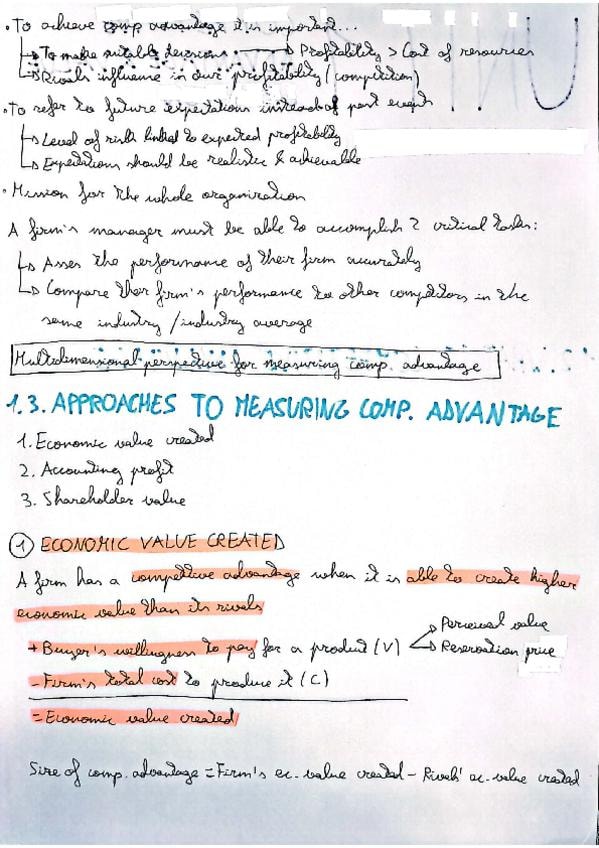 • To achieve comp. advantage it is important...
↳ To make suitable decisions → Profitability > Cost of resources
↳ Rivals influence in our profitability (competition)
• To refer to future expectations instead of past events
↳ Level of risk linked to expected profitability
↳ Expectations should be realistic & achievable
• Mission for the whole organization
A firm's manager must be able to accomplish 2 critical tasks:
↳ Asses the performance of their firm accurately
↳ Compare their firm's performance to other competitors in the
same industry / industry average
Multidimensional perspective for measuring comp. advantage
1.3. APPROACHES TO MEASURING COMP. ADVANTAGE
1. Economic value created
2. Accounting profit
3. Shareholder value
1 ECONOMIC VALUE CREATED
A firm has a competitive advantage when it is able to create higher
economic value than its rivals
+ Buyer's willingness to pay for a product (V) → Perceived value
→ Reservation price
- Firm's total cost to produce it (C)
= Economic value created
Size of comp. advantage = Firm's ec. value created - Rivals' ec. value created